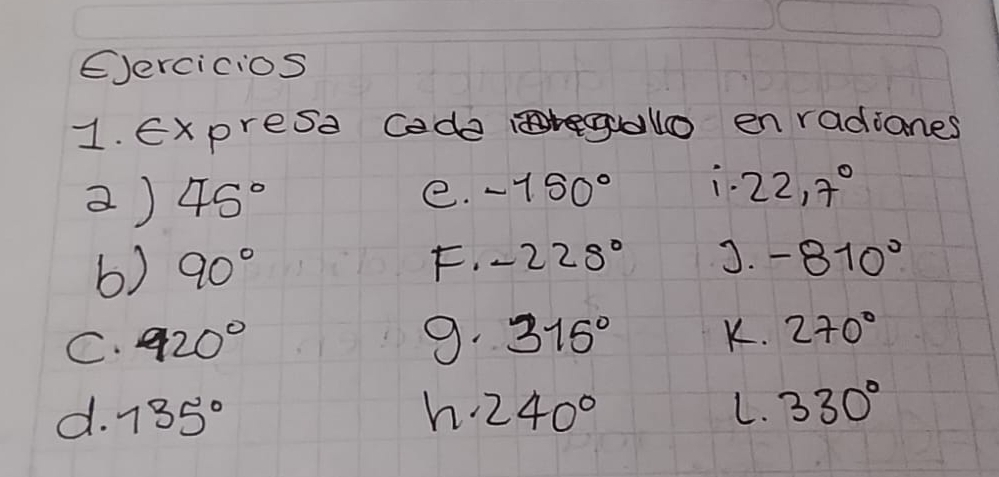 Ejercicios
1. Expresa cada en radianes
a) 45° e. -150° i. 22,7°
b) 90° F. -225° J. -810°
c. 120° g. 315° K. 270°
d. 135° h. 240° L. 330°